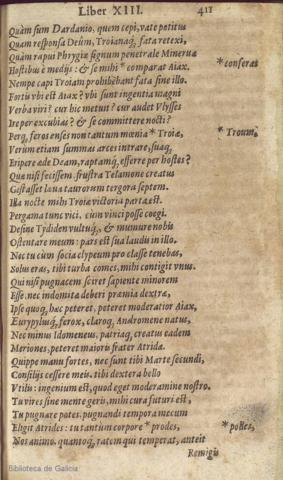 Liber XIII. 411
Quàm sum Dardanio, quem cepi, vate potitus
Quam responsa Deûm, Troianaq́, fata retexi,
Quàm rapui Phrygiæ signum penetrale Mineruæ
Hostibus è medijs: & se mihi * comparat Aiax. * conferat
Nempe capi Troiam prohibebant fata sine illo.
Fortis vbi est Aiax? vbi sunt ingentia magni
Verba viri? cur hic metuit? cur audet Vlysses
Ire per excubias? & se committere nocti?
Perq́, feros enses non tantum mœnia * Troiæ, * Troum,
Verum etiam summas arces intrare, suaq́,
Eripere æde Deam, raptamq́, efferre per hostes?
Quæ nisi fecissem: frustra Telamone creatus
Gestasset læua taurorum tergora septem.
Illa nocte mihi Troiæ victoria parta est.
Pergama tunc vici, cùm vinci posse coegi.
Desine Tydiden vultuq́, & murmure nobis
Ostentare meum: pars est sua laudis in illo.
Nec tu cùm socia clypeum pro classe tenebas,
Solus eras, tibi turba comes, mihi contigit vnus.
Qui nisi pugnacem sciret sapiente minorem
Esse, nec indomitæ deberi præmia dextræ,
Ipse quoq́, hæc peteret, peteret moderatior Aiax,
Eurypyluq́, ferox, claroq́, Andremone natus,
Nec minus Idomeneus, patriaq́, creatus eadem
Meriones, peteret maioris frater Atridæ.
Quippe manu fortes, nec sunt tibi Marte secundi,
Consilijs cessere meis. tibi dextera bello
Vtilis: ingenium est, quod eget moderamine nostro.
Tu vires sine mente geris, mihi cura futuri est,
Tu pugnare potes. pugnandi tempora mecum
Eligit Atrides: tu tantùm corpore * prodes, * polles,
Nos animo. quantoq́, ratem qui temperat, anteit
Remigis
Biblioteca de Galicia